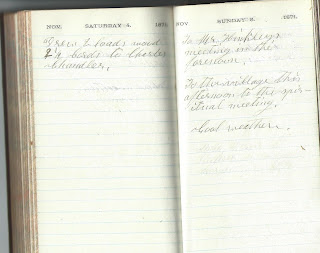 NOV. SATURDAY 4. 187
Drew 2 loads wood
2 birds to Chester
Chandler.
NOV SUNDAY 5. 1871.
To Mr. Hinkleys
meeting in the
forenoon.
To the village this
afternoon to the spir-
itual meeting.
Cool weather.